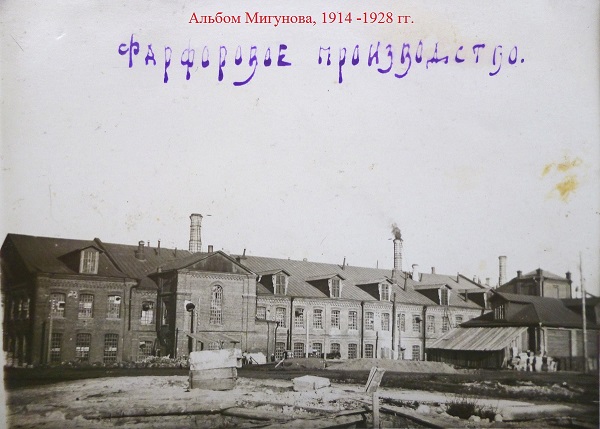 Альбом Мигунова, 1914 -1928 гг.
Фарфоровое производство.